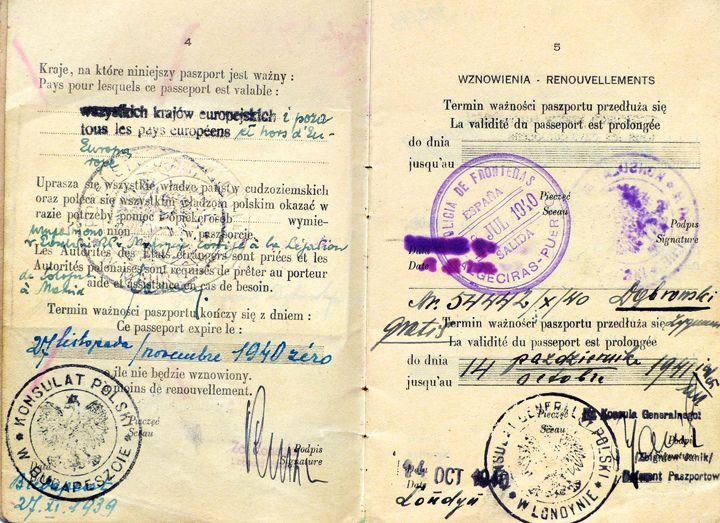 4
Kraje, na które niniejszy paszport jest ważny :
Pays pour lesquels ce passeport est valable :
wszystkich krajów europejskich i poza
tous les pays européens et hors d'Eu-
Europą rope
Uprasza się wszystkie władze państw cudzoziemskich
oraz poleca się wszystkim władzom polskim okazać w
razie potrzeby pomoc i opiekę osób wymie-
nion w paszporcie.
Les Autorités des Etats étrangers sont priées et les
Autorités polonaises sont requises de prêter au porteur
aide et assistance en cas de besoin.
Termin ważności paszportu kończy się z dniem :
Ce passeport expire le :
27 listopada / novembre 1940 zéro
o ile nie będzie wznowiony.
à moins de renouvellement.
KONSULAT POLSKI
W BUDAPESZCIE
Pieczęć
Sceau
Podpis
Signature
Budapeszt
27.XI.1939
5
WZNOWIENIA - RENOUVELLEMENTS
Termin ważności paszportu przedłuża się
La validité du passeport est prolongée
do dnia
jusqu'au
POLICIA DE FRONTERAS
ESPAÑA
JUL 1940
SALIDA
ALGECIRAS-PUERTO
Pieczęć
Sceau
Podpis
Signature
Data
Date
Nr. 54442/X/40 Dąbrowski
gratis
Termin ważności paszportu przedłuża się
La validité du passeport est prolongée
do dnia
jusqu'au
14 październik 1941
octobre
KONSULAT GENERALNY POLSKI
W LONDYNIE
Pieczęć
Sceau
Konsula Generalnego
Podpis
/Zbigniew Janik/
Referent Paszportowy
Data
14 OCT 1940
Londyn